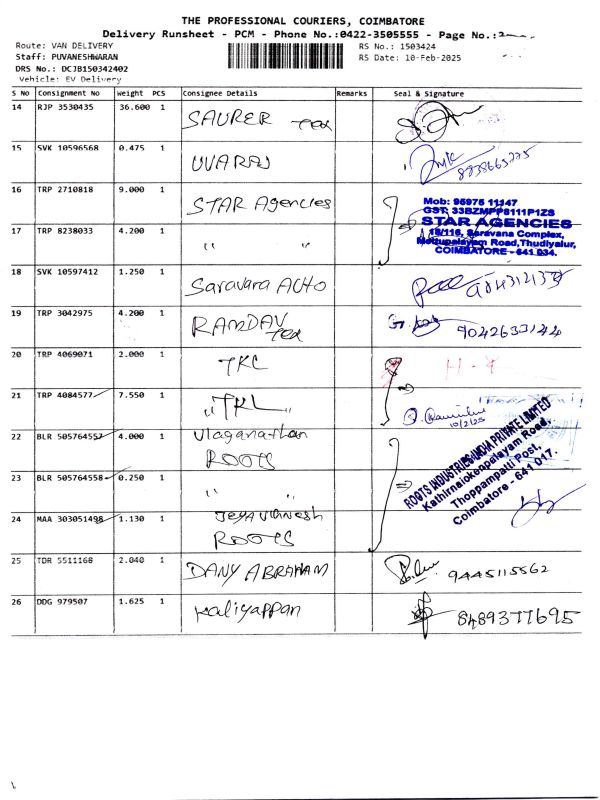 THE PROFESSIONAL COURIERS, COIMBATORE
Delivery Runsheet - PCM - Phone No.:0422-3505555 - Page No.:2
Route: VAN DELIVERY
RS No.: 1503424
Staff: PUVANESHWARAN
RS Date: 10-Feb-2025
DRS No.: DCJB150342402
Vehicle: EV Delivery
S No Consignment No Weight PCS Consignee Details Remarks Seal & Signature
14 RJP 3530435 36.600 1 SAURER Tex
15 SVK 10596568 0.475 1 UVARAJ
16 TRP 2710818 9.000 1 STAR Agencies
Mob: 95975 11147
GST: 33BZMPP8111P1ZS
STAR AGENCIES
18/116, Saravana Complex,
Mettupalayam Road,Thudiyalur,
COIMBATORE - 641 034.
17 TRP 8238033 4.200 1 " "
18 SVK 10597412 1.250 1 Saravana AUTO
19 TRP 3042975 4.200 1 RAMDAV Tex 9042633144
20 TRP 4069071 2.000 1 TKL
21 TRP 4084577 7.550 1 " TKL "
10/2/25
22 BLR 505764557 4.000 1 Ulaganathan
ROOTS
ROOTS INDUSTRIES INDIA PRIVATE LIMITED
Kathirnaickenpalayam Road,
Thoppampatti Post,
Coimbatore - 641 017.
23 BLR 505764558 0.250 1 " "
24 MAA 303051498 1.130 1 Jeyavignesh
ROOTS
25 TDR 5511168 2.040 1 DANY ABRAHAM 9445115562
26 DDG 979507 1.625 1 Kaliyappan 8489377695